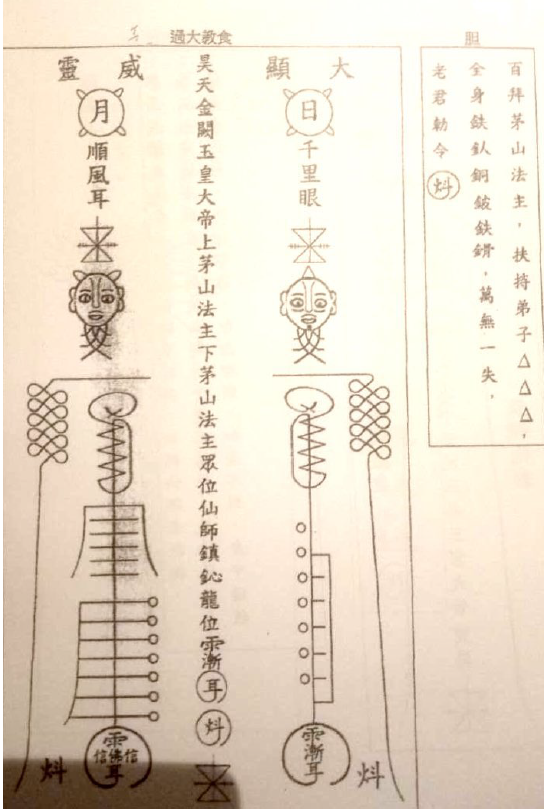 胆
百拜茅山法主，扶持弟子△△△，
全身鉄銅鈹鉄，萬無一失，
老君勅令 炓
過大教食
大顯
日
千里眼
漸耳
炓
昊天金闕玉皇大帝上茅山法主下茅山法主眾位仙師鎮鈊龍位漸耳炓
威靈
月
順風耳
信佛信
耳
炓